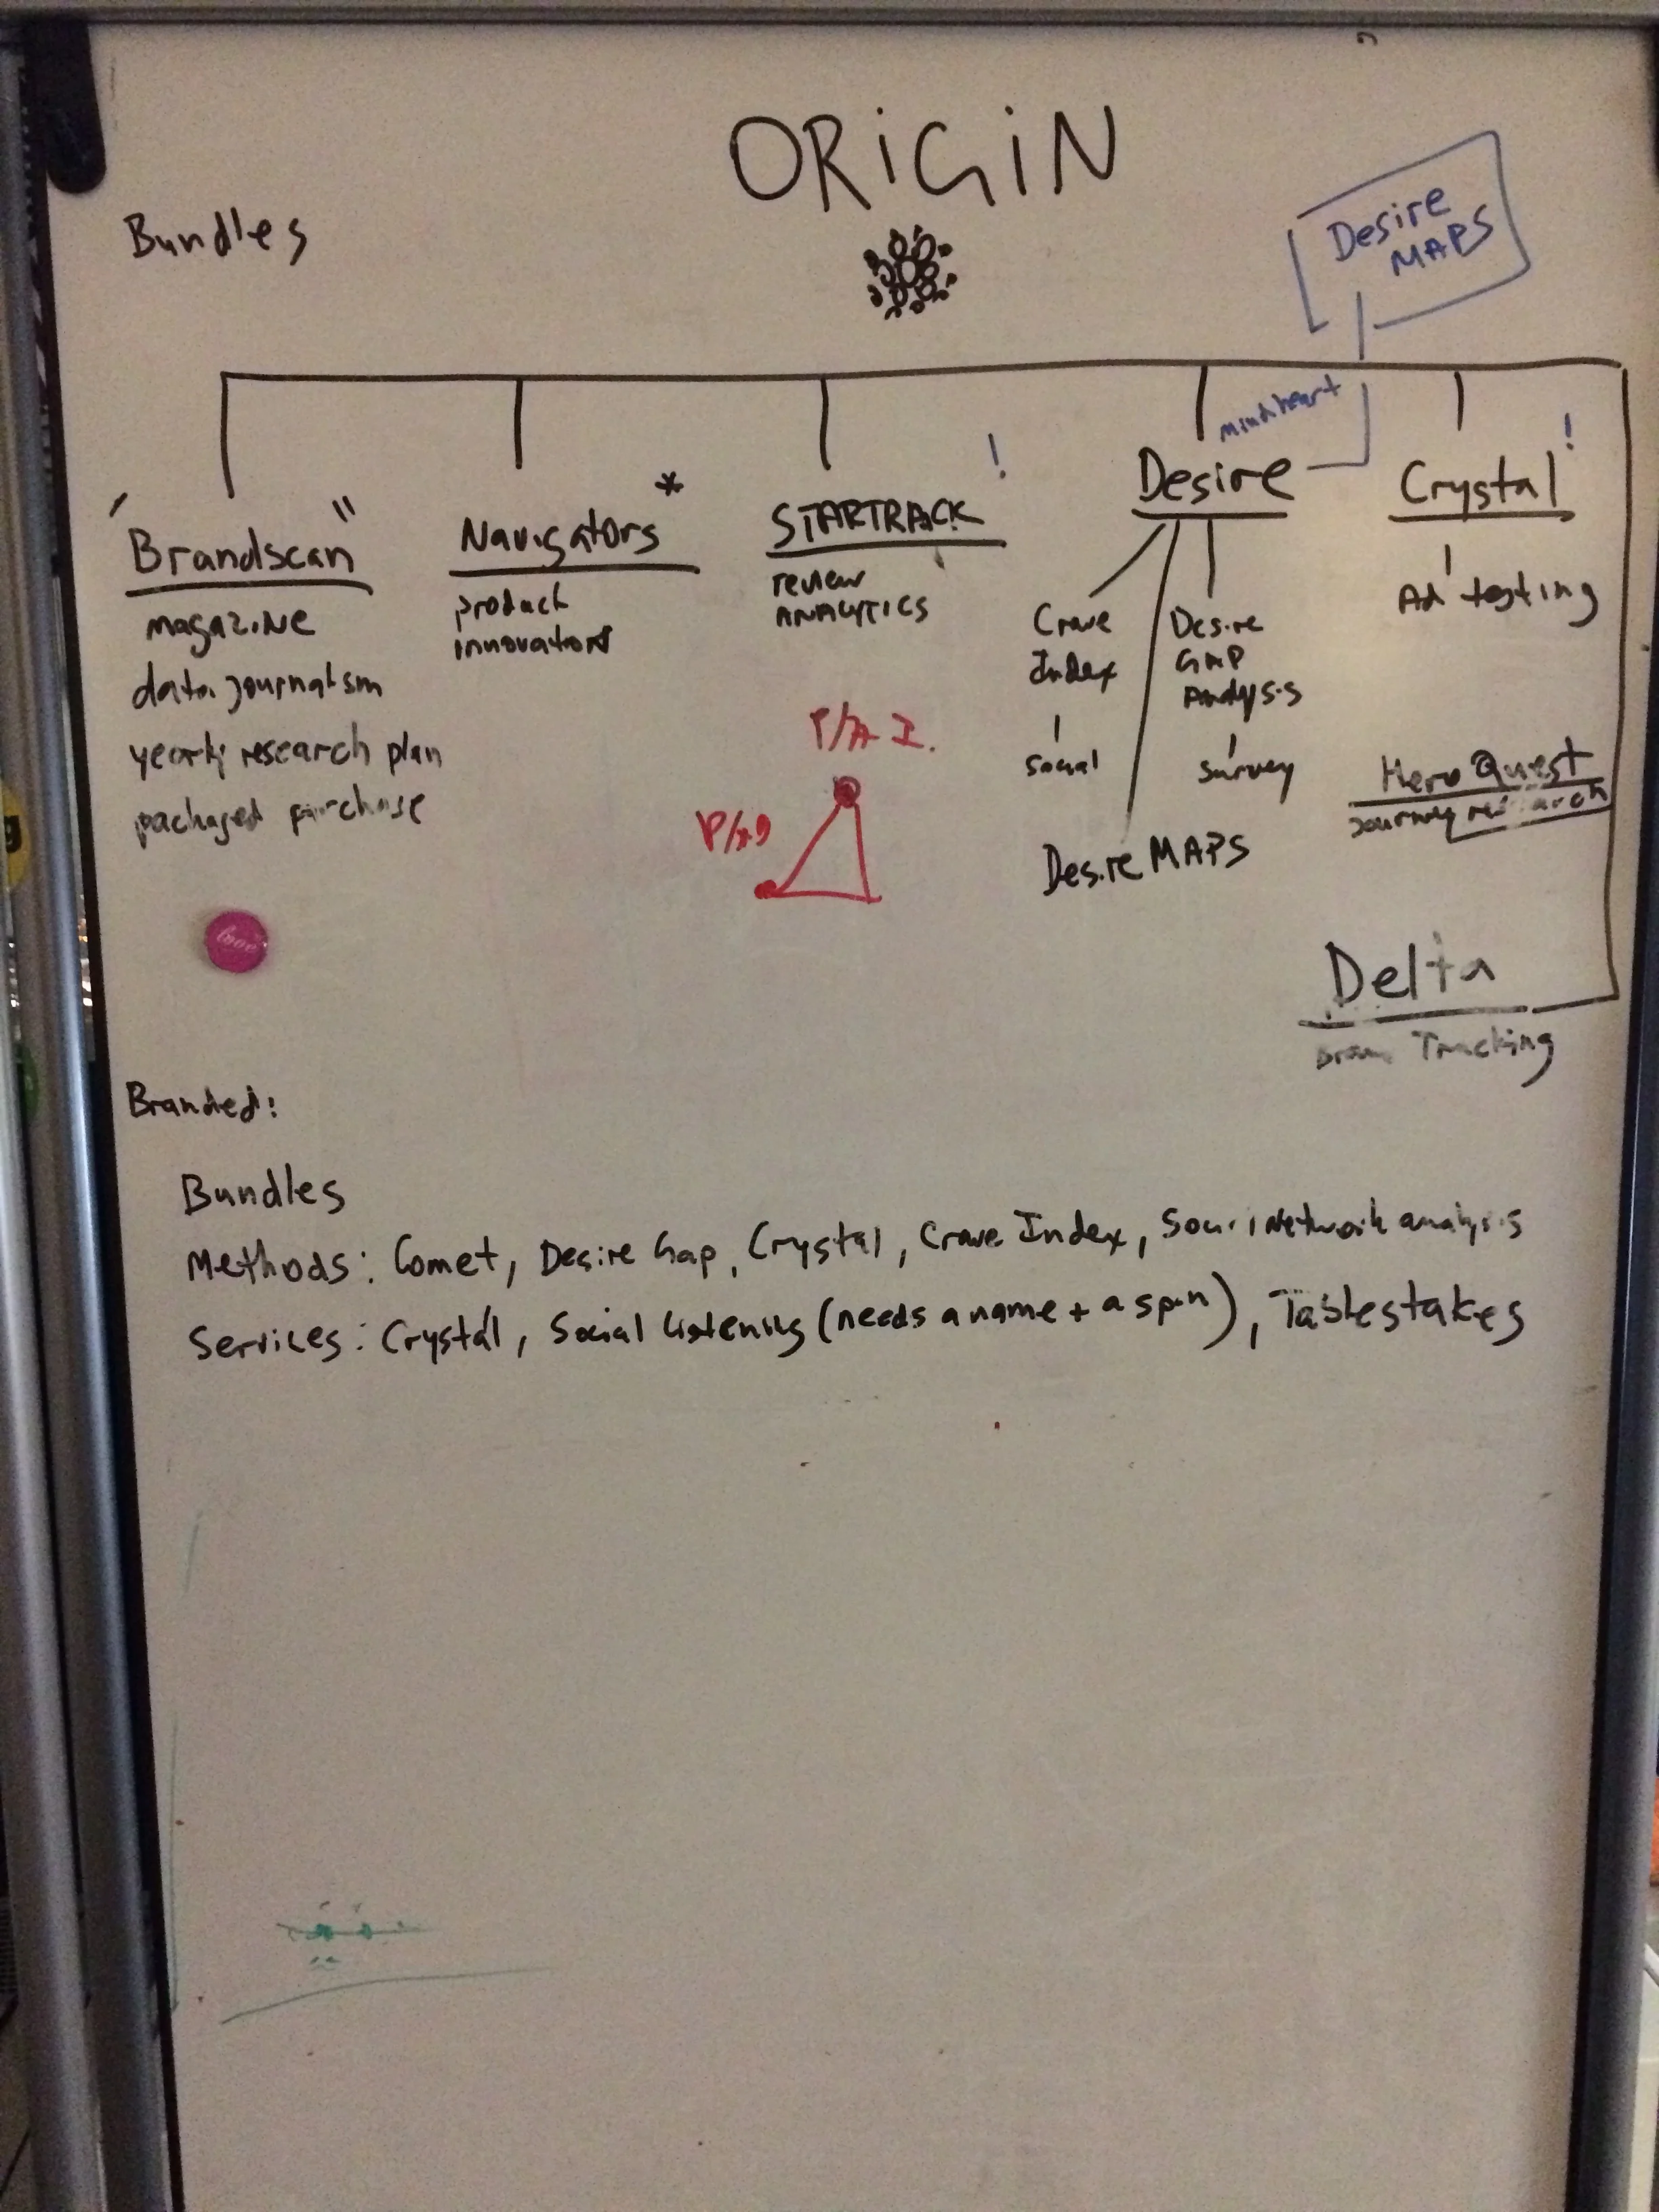 ORIGIN
Bundles
Desire
MAPS
mind heart
"Brandscan"
magazine
data journalism
yearly research plan
packaged purchase
Navigators*
product
innovation
STARTRACK !
review
ANALYTICS
Desire
Crave
Index
social
Desire
GAP
Analysis
survey
Desire MAPS
Crystal !
Ad testing
Hero Quest
journey research
Delta
Tracking
love
Branded:
Bundles
Methods: Comet, Desire Gap, Crystal, Crave Index, Network analysis
Services: Crystal, Social listening (needs a name + a spin), Tablestakes